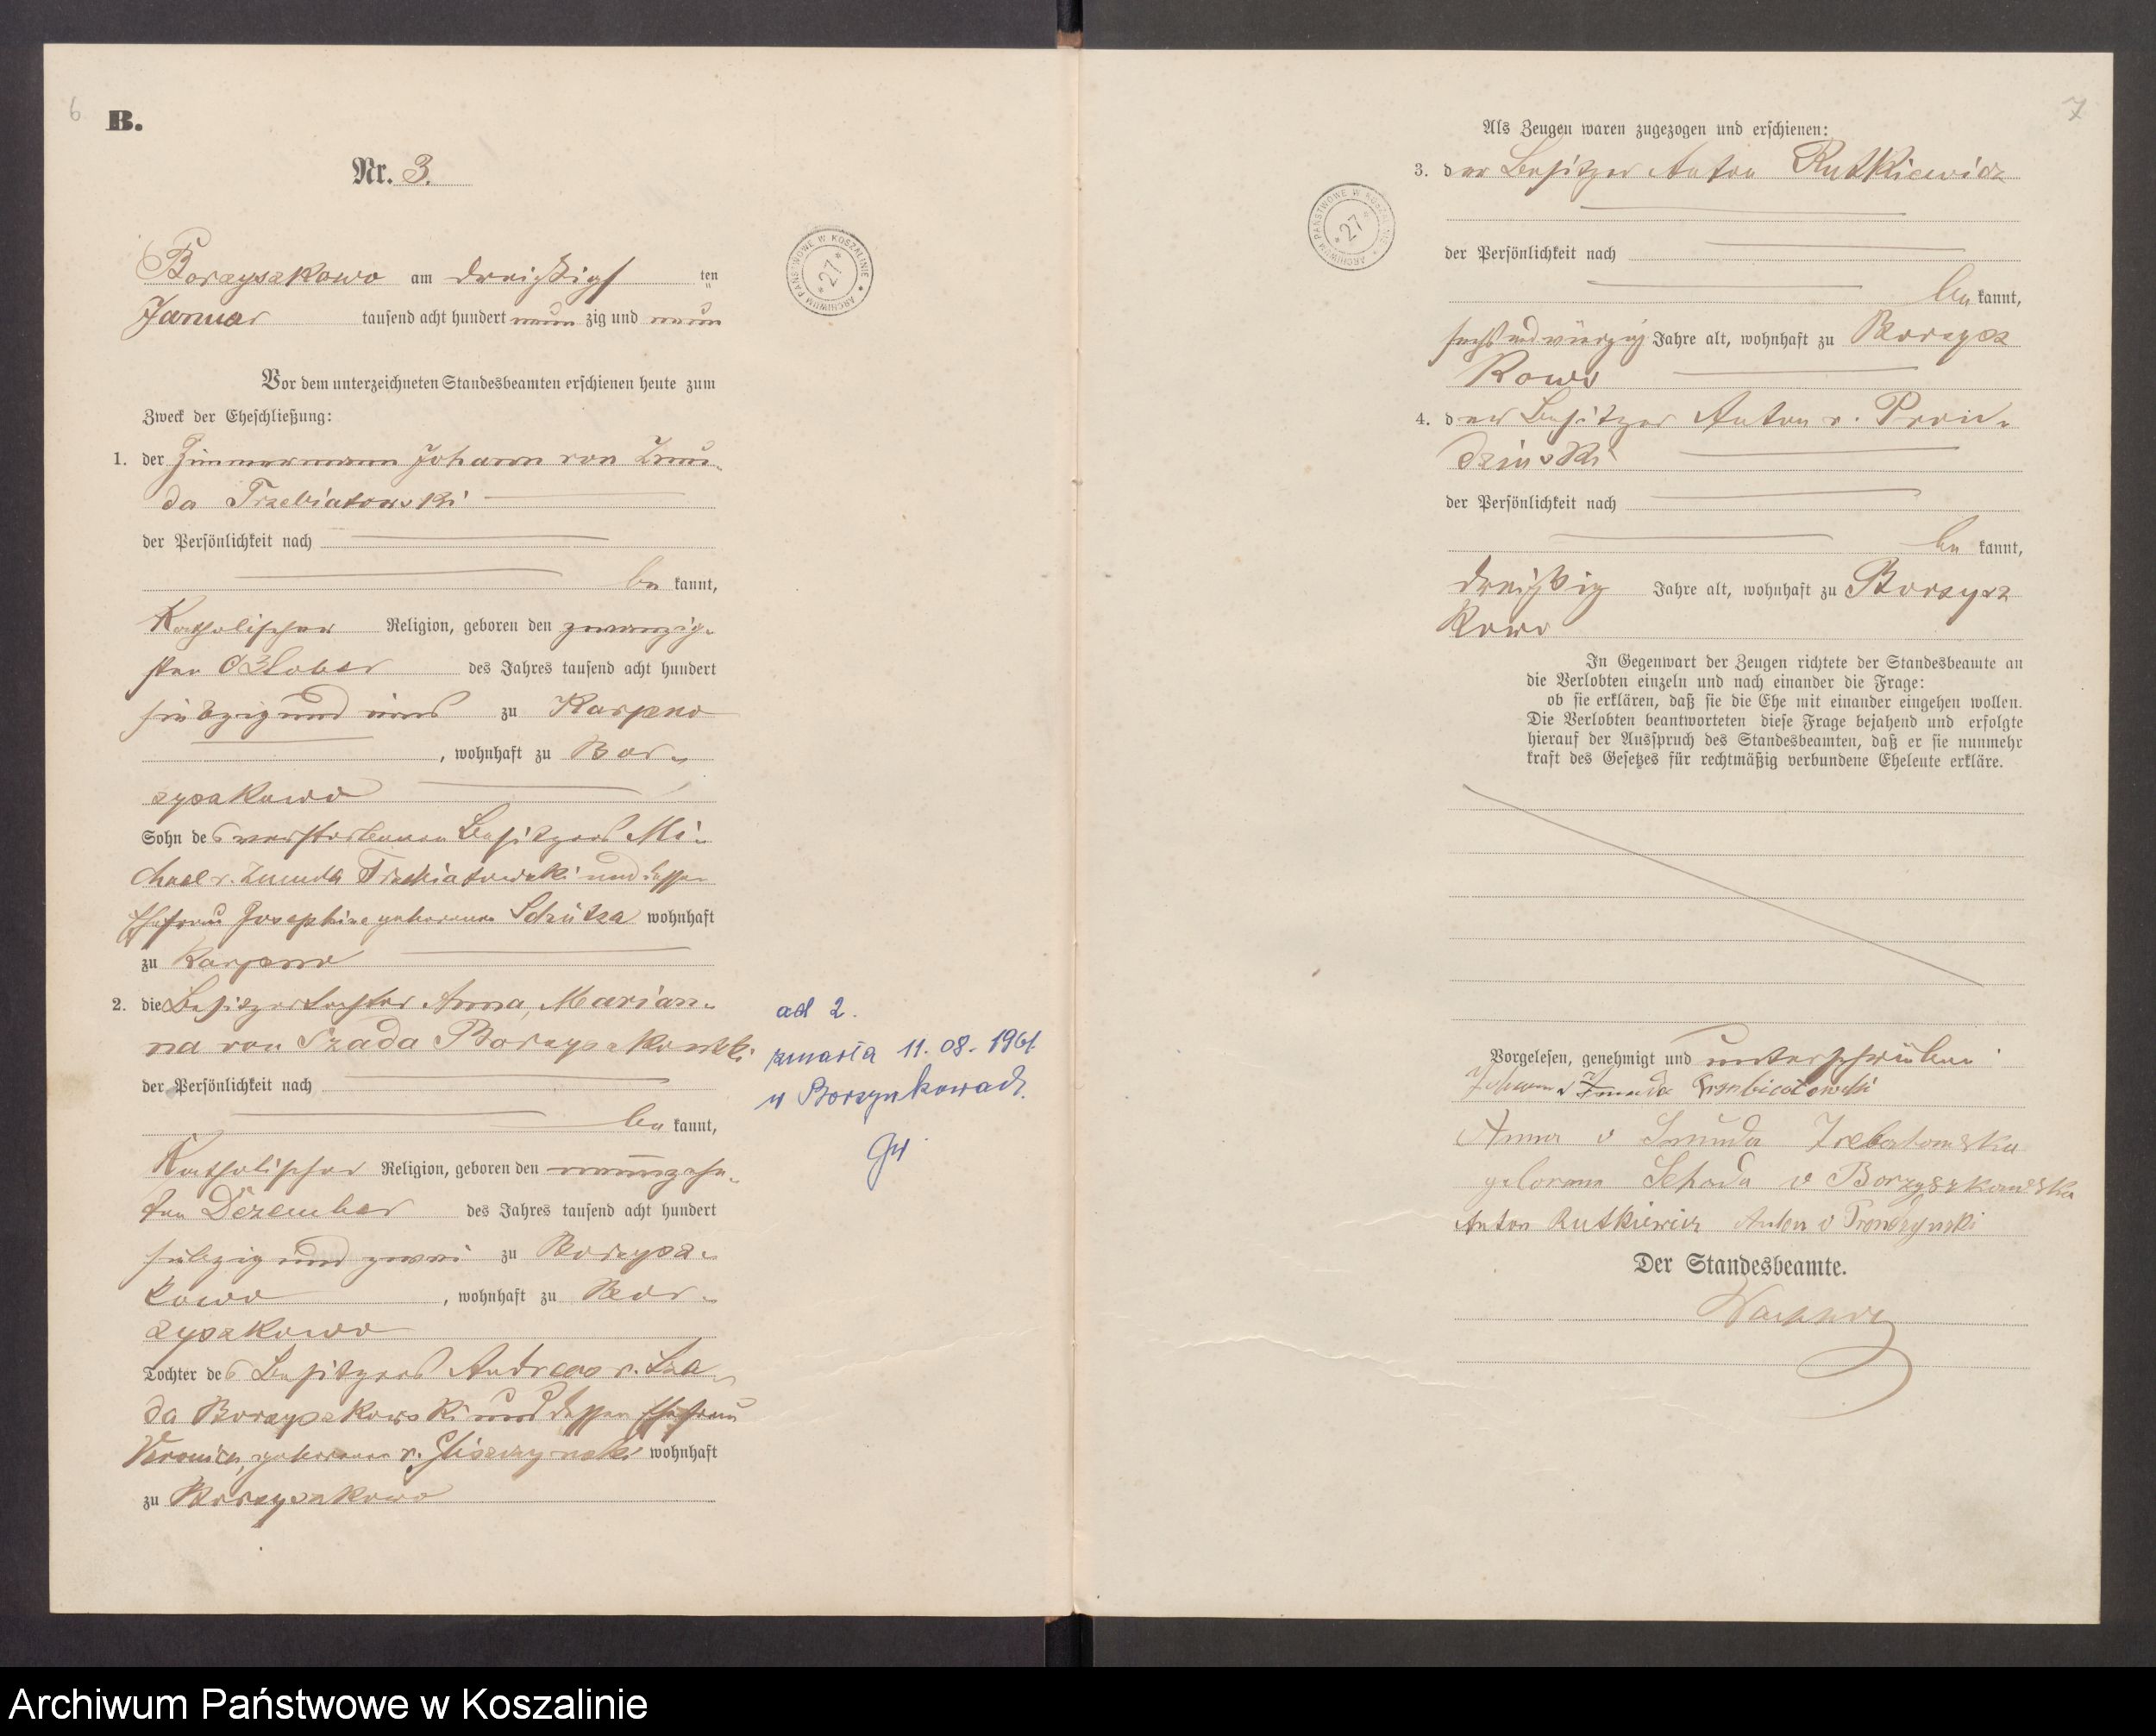 6
B.
Nr. 3.
Borzyszkowo am dreißigsten
Januar tausend acht hundert neunzig und neun
Vor dem unterzeichneten Standesbeamten erschienen heute zum
Zweck der Eheschließung:
1. der Zimmermann Johann von Zmu-
da Trzebiatowski
der Persönlichkeit nach
bekannt,
Katholischer Religion, geboren den zwanzig-
sten Oktober des Jahres tausend acht hundert
siebzig und eins zu Karpno
, wohnhaft zu Bor-
zyszkowo
Sohn des verstorbenen Besitzers Mi-
chael v. Zmuda Trzebiatowski und dessen
Ehefrau Josephine geborenen Schütza wohnhaft
zu Karpno
2. die Besitzertochter Anna, Marian-
na von Szada Borzyszkowski
der Persönlichkeit nach
bekannt,
Katholischer Religion, geboren den neunzehn-
ten Dezember des Jahres tausend acht hundert
siebzig und zwei zu Borzysz-
kowo , wohnhaft zu Bor-
zyszkowo
Tochter des Besitzers Andreas v. Sza-
da Borzyszkowski und dessen Ehefrau
Veronica, geborenen v. Gliszczynski wohnhaft
zu Borzyszkowo
ARCHIWUM PAŃSTWOWE W KOSZALINIE * 27 *
ad 2.
zmarła 11.08.1961
w Borzyszkowach
7
Als Zeugen waren zugezogen und erschienen:
ARCHIWUM PAŃSTWOWE W KOSZALINIE * 27 *
3. der Besitzer Anton Rutkiewicz
der Persönlichkeit nach
bekannt,
sechsundvierzig Jahre alt, wohnhaft zu Borzysz
kowo
4. der Besitzer Anton v. Pron-
dzinski
der Persönlichkeit nach
bekannt,
dreißig Jahre alt, wohnhaft zu Borzysz
kowo
In Gegenwart der Zeugen richtete der Standesbeamte an
die Verlobten einzeln und nach einander die Frage:
ob sie erklären, daß sie die Ehe mit einander eingehen wollen.
Die Verlobten beantworteten diese Frage bejahend und erfolgte
hierauf der Ausspruch des Standesbeamten, daß er sie nunmehr
kraft des Gesetzes für rechtmäßig verbundene Eheleute erkläre.
Vorgelesen, genehmigt und unterschrieben
Johann v Zmuda Trzebiatowski
Anna v Smuda Trebatowska
geborene Schada v Borzyszkowska
Anton Rutkiewicz Anton v Prondzynski
Der Standesbeamte.
Archiwum Państwowe w Koszalinie